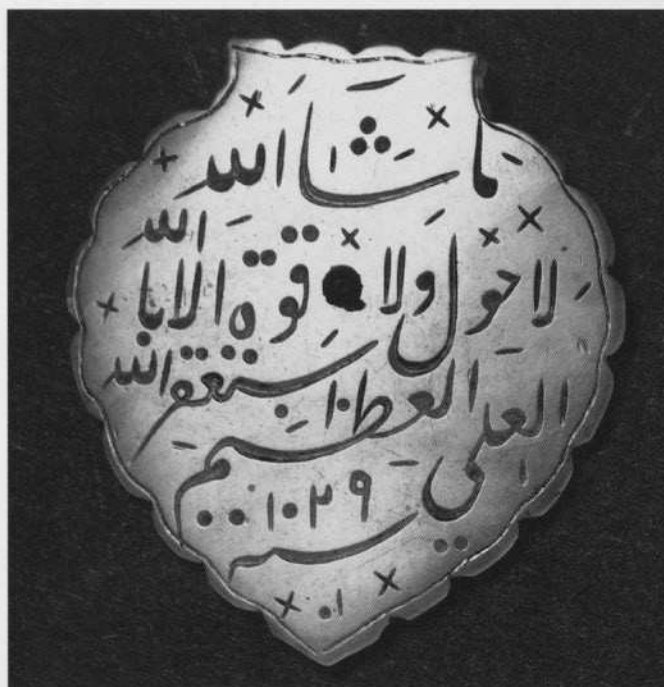 ما شا الله
لا حول ولا قوة الا بالله
العلي العظيم استغفر الله
سنه ١٠٢٩